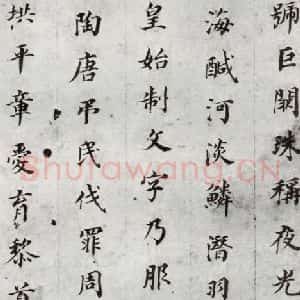 號巨闕珠稱夜光
海醎河淡鱗潛羽
皇始制文字乃服
陶唐弔民伐罪周
拱平章愛育黎首
Shufawang.CN